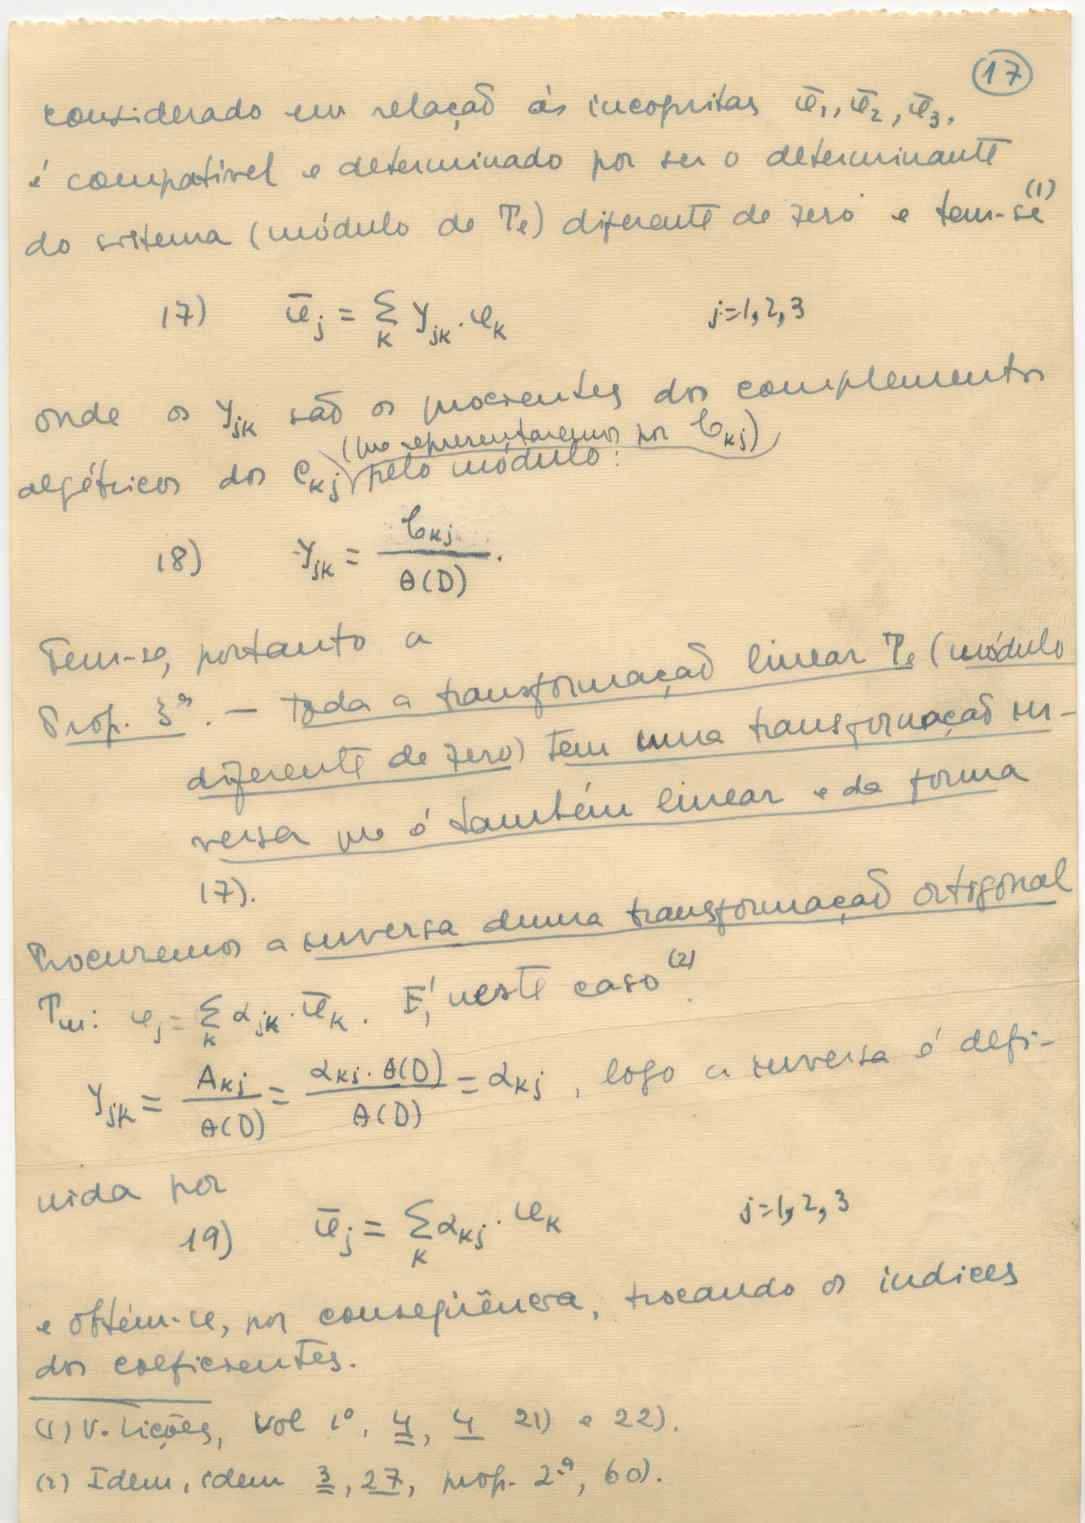 17
considerado em relação às incognitas ū₁, ū₂, ū₃,
é compatível e determinado por ser o determinante
do sistema (módulo de Tₑ) diferente de zero e tem-se (1)
17) ūⱼ = Σₖ γⱼₖ · uₖ j=1,2,3
onde os γⱼₖ são os quocientes dos complementos
(que representaremos por 𝒞ₖⱼ)
algébricos dos cₖⱼ pelo módulo:
18) γⱼₖ = 𝒞ₖⱼ / θ(D).
Tem-se, portanto a
Prop. 3ª. — Toda a transformação linear Tₑ (módulo
diferente de zero) tem uma transformação in-
versa que é também linear e da forma
17).
Procuremos a inversa duma transformação ortogonal
Tₘ: uⱼ = Σₖ αⱼₖ · ūₖ. É, neste caso (2)
γⱼₖ = Aₖⱼ / θ(D) = αₖⱼ · θ(D) / θ(D) = αₖⱼ, logo a inversa é defi-
nida por
19) ūⱼ = Σₖ αₖⱼ · uₖ j=1,2,3
e obtém-se, por conseqüência, trocando os indices
dos coeficientes.
(1) V. Lições, vol 1º, 4, 4 21) e 22).
(2) Idem, idem 3, 27, prop. 2ª, 60).